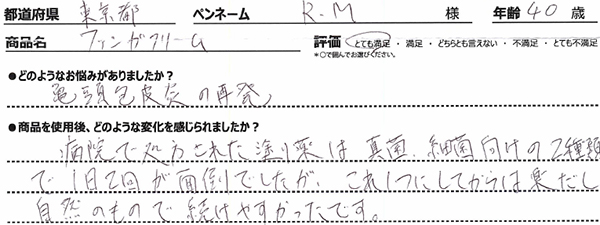 都道府県 東京都 ペンネーム K.M 様 年齢 40 歳
商品名 ファンガクリーム 評価 とても満足・満足・どちらとも言えない・不満足・とても不満足
*○で囲んでお選びください。
●どのようなお悩みがありましたか？
亀頭包皮炎の再発
●商品を使用後、どのような変化を感じられましたか？
病院で処方された塗り薬は真菌、細菌向けの2種類
で1日2回が面倒でしたが、これ1つにしてからは楽だし
自然のもので続けやすかったです。